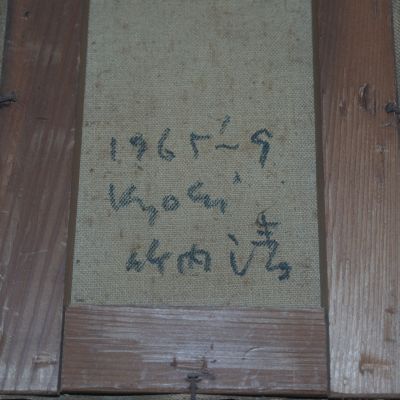 1965-9
Kyosi
竹内清